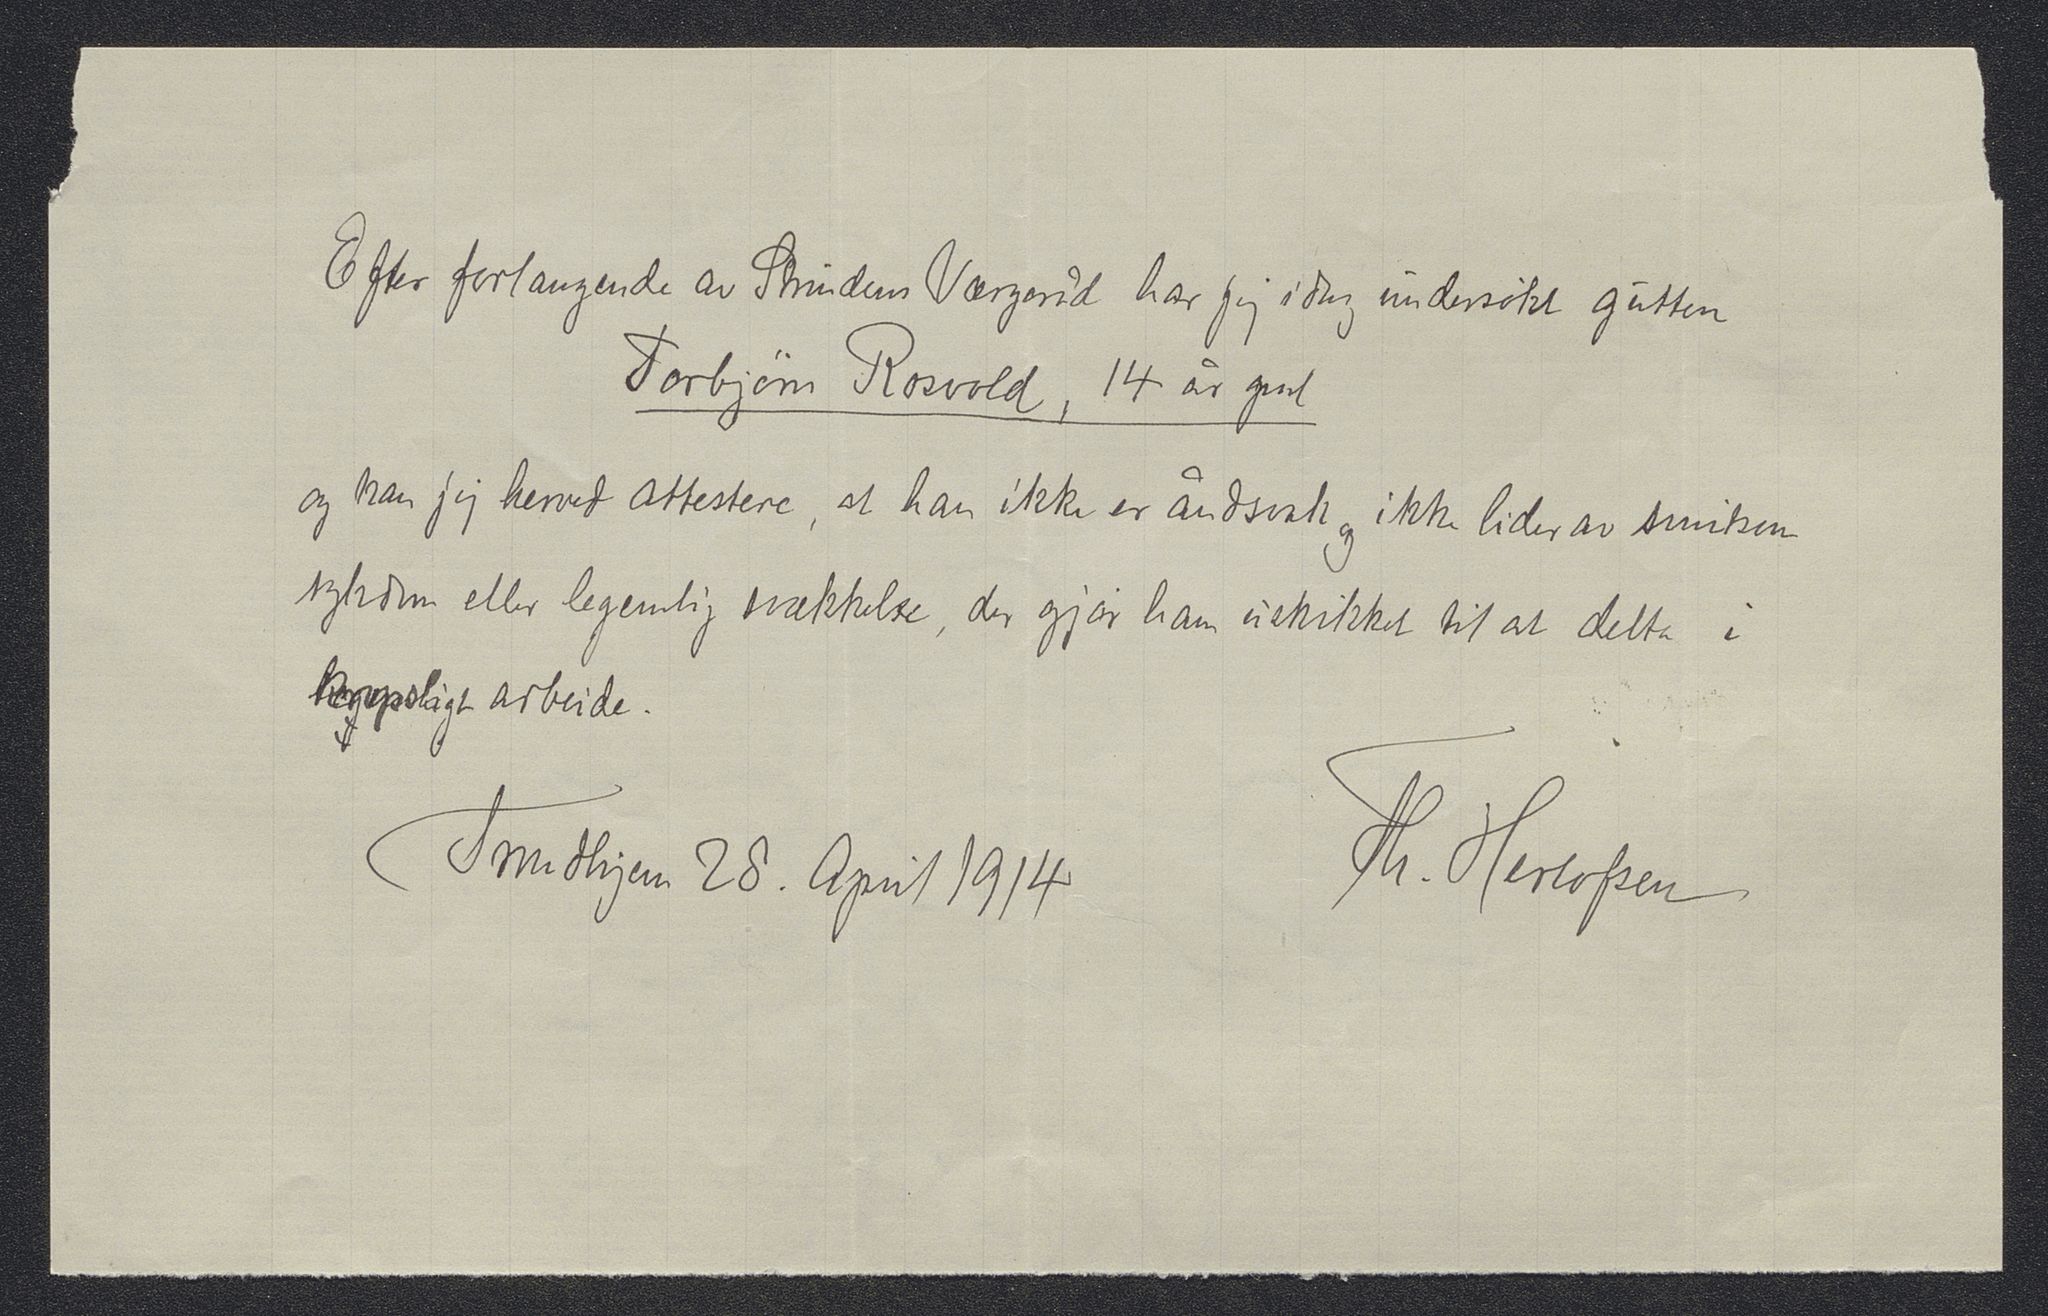 Efter forlangende av Strindens Værgeråd har jeg idag undersökt gutten
Torbjörn Rosvold, 14 år gml
og kan jeg herved attestere, at han ikke er åndsvak og ikke lider av smitsom
sykdom eller legemlig svækkelse, der gjör ham uskikket til at delta i
arbeide.
Trondhjem 28. April 1914
Th. Herlofsen